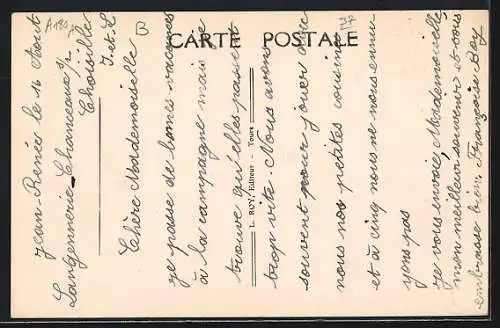 A180
CARTE POSTALE
L. ROY, Editeur - Tours
Jean-Renée le 16 Août
Langennerie-Chanceaux s/
Choisille
I-et-L
Chère Mademoiselle
je passe de bonnes vacances
à la campagne mais je
trouve qu'elles passent
trop vite. Nous avons
souvent pour jouer avec
nous nos petites cousines
et à cinq nous ne nous ennu
yons pas
Je vous envoie, Mademoiselle
mon meilleur souvenir et vous
embrasse bien. Françoise Roy